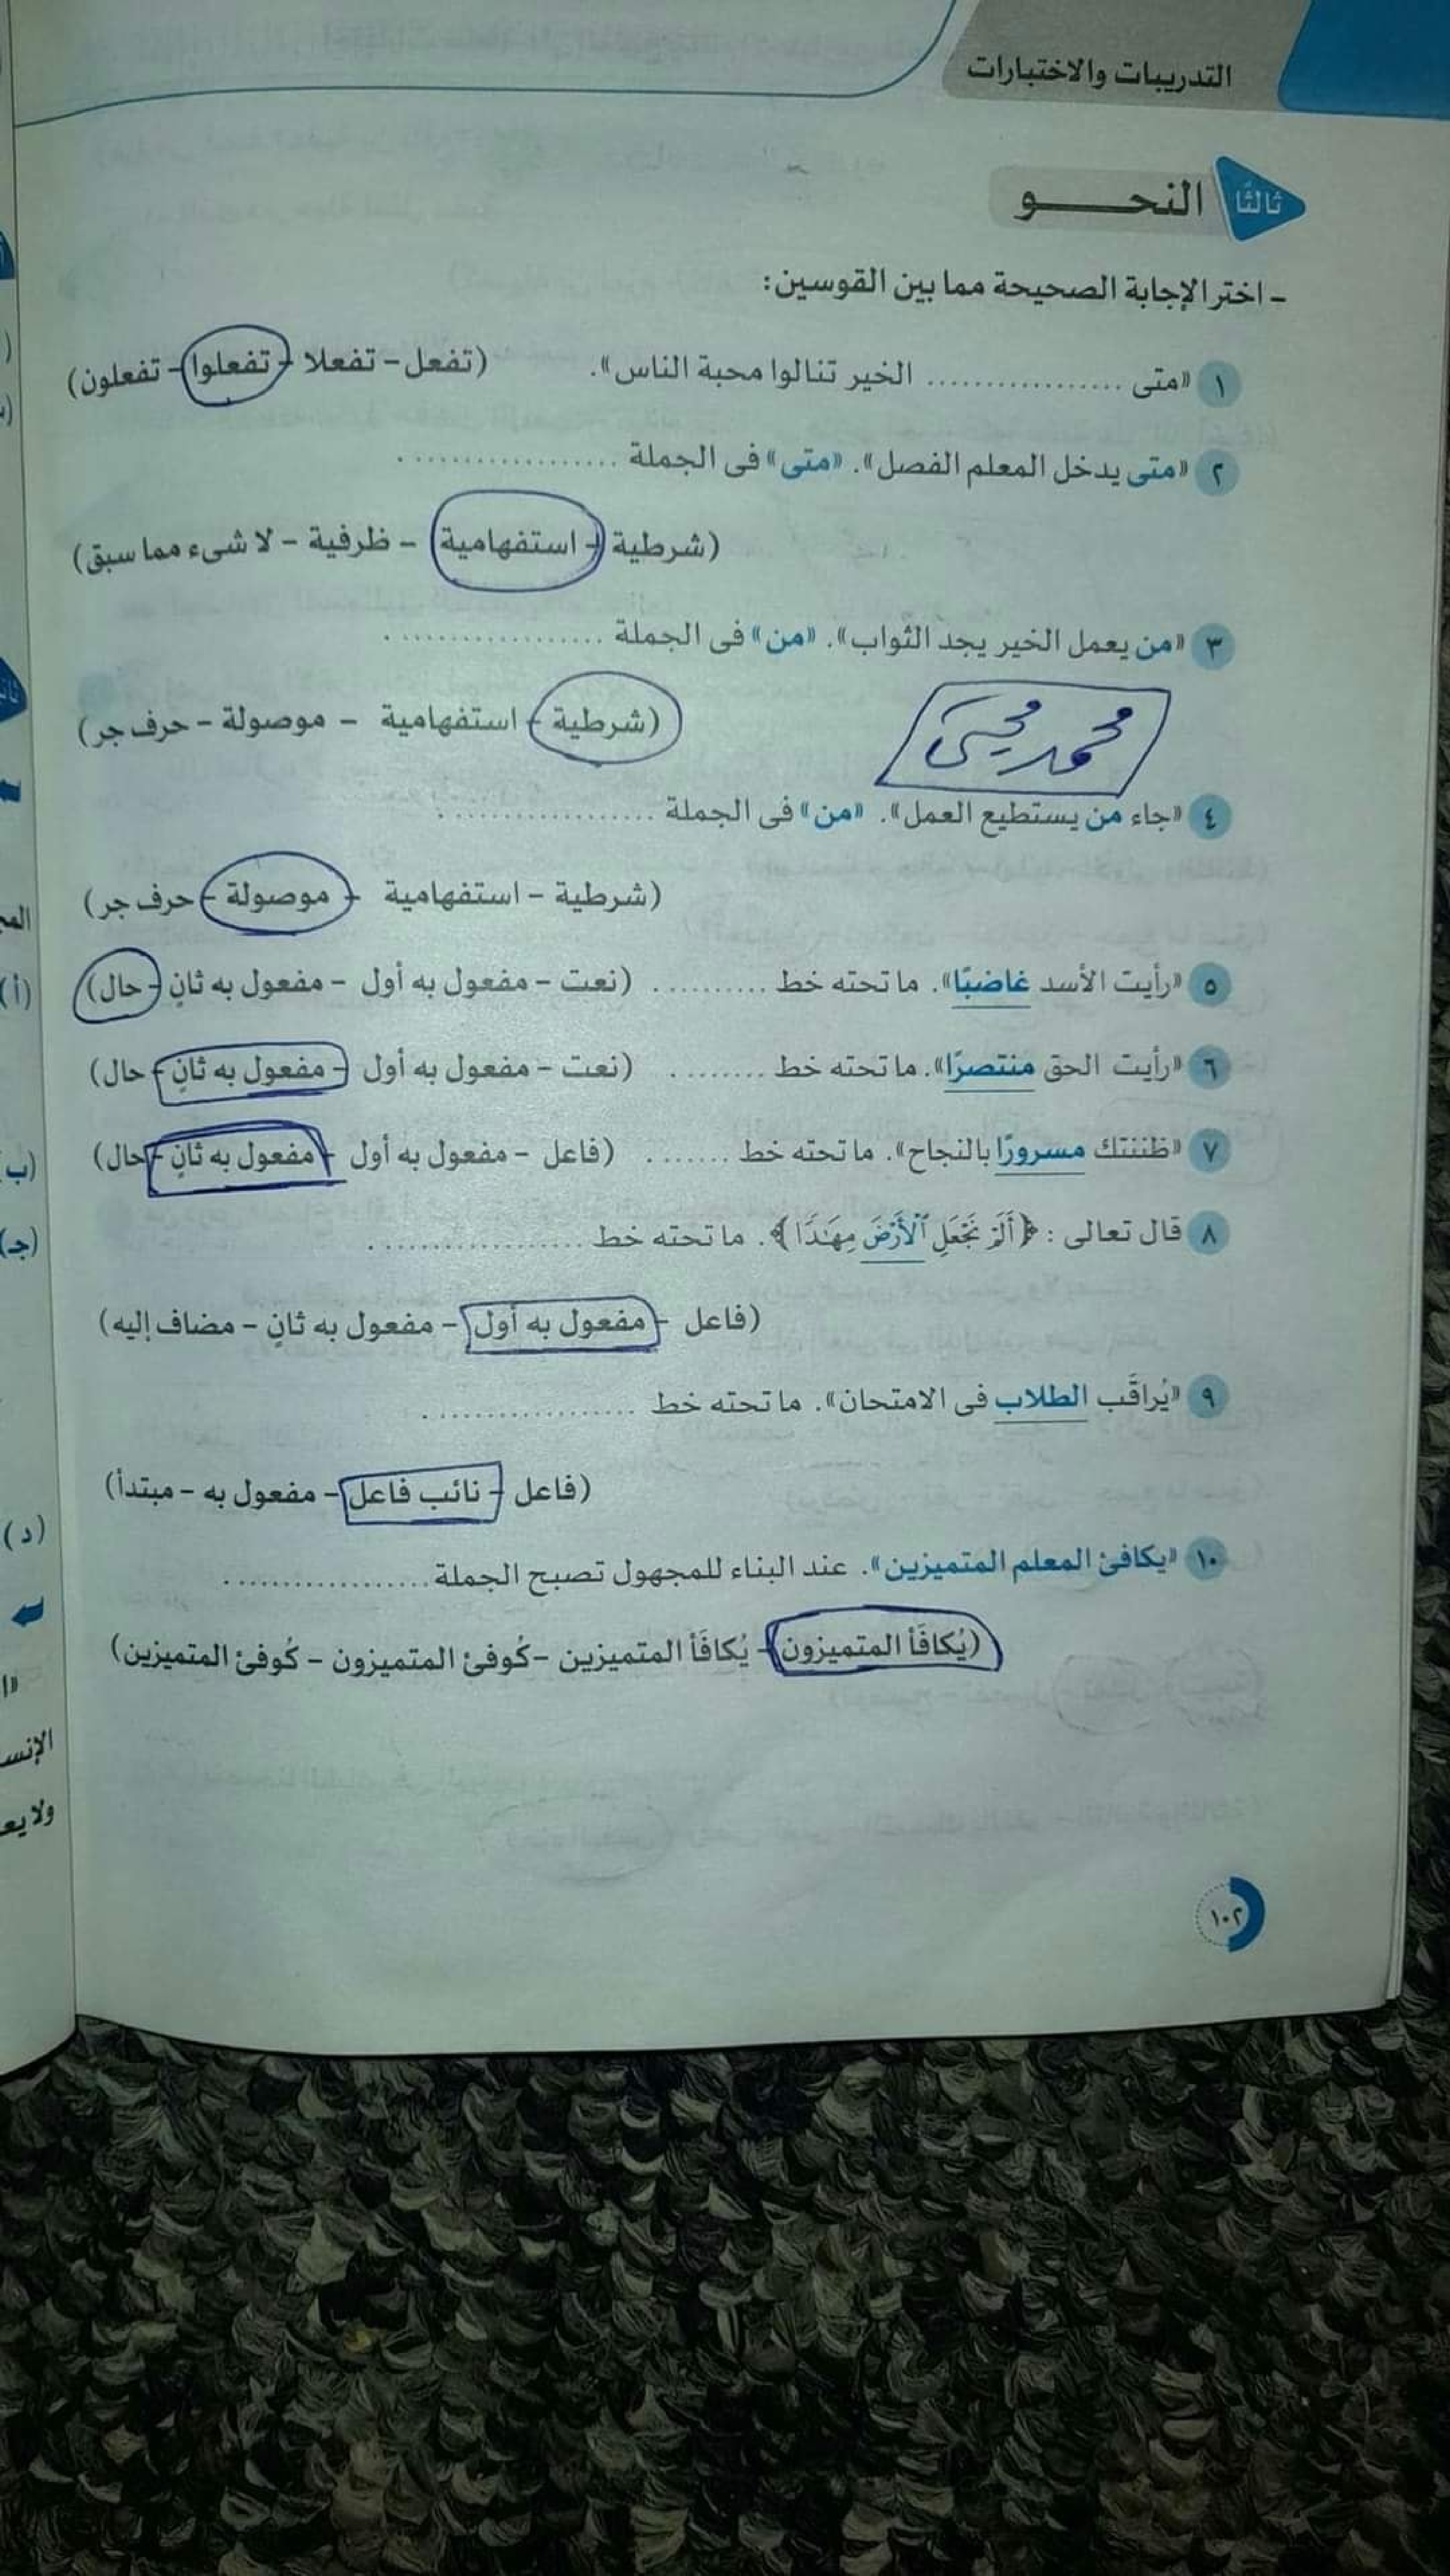 التدريبات والاختبارات
ثالثًا النحـــو
- اختر الإجابة الصحيحة مما بين القوسين:
١ «متى ................. الخير تنالوا محبة الناس». (تفعل - تفعلا - تفعلوا - تفعلون)
٢ «متى يدخل المعلم الفصل». «متى» فى الجملة .................
(شرطية - استفهامية - ظرفية - لا شىء مما سبق)
٣ «من يعمل الخير يجد الثواب». «من» فى الجملة .................
(شرطية - استفهامية - موصولة - حرف جر)
محمد يحيى
٤ «جاء من يستطيع العمل». «من» فى الجملة .................
(شرطية - استفهامية - موصولة - حرف جر)
٥ «رأيت الأسد غاضبًا». ما تحته خط .......... (نعت - مفعول به أول - مفعول به ثانٍ - حال)
٦ «رأيت الحق منتصرًا». ما تحته خط ......... (نعت - مفعول به أول - مفعول به ثانٍ - حال)
٧ «ظننتك مسرورًا بالنجاح». ما تحته خط ....... (فاعل - مفعول به أول - مفعول به ثانٍ - حال)
٨ قال تعالى : ﴿أَلَمْ نَجْعَلِ ٱلْأَرْضَ مِهَٰدًا﴾. ما تحته خط .................
(فاعل - مفعول به أول - مفعول به ثانٍ - مضاف إليه)
٩ «يُراقَب الطلاب فى الامتحان». ما تحته خط .................
(فاعل - نائب فاعل - مفعول به - مبتدأ)
١٠ «يكافئ المعلم المتميزين». عند البناء للمجهول تصبح الجملة .................
(يُكافَأ المتميزون - يُكافَأ المتميزين - كُوفئ المتميزون - كُوفئ المتميزين)
١٠٢